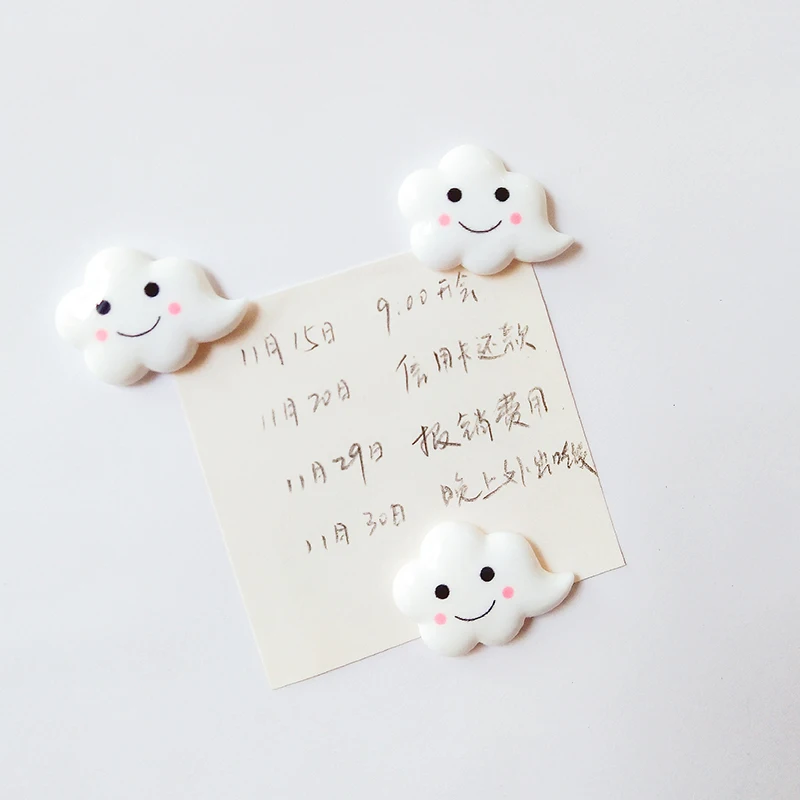 11月15日 9:00开会
11月20日 信用卡还款
11月29日 报销费用
11月30日 晚上外出吃饭